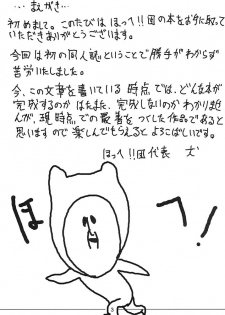 … まえがき …
初めまして。このたびは ほっへ!!団の本をお手に取って
いただきありがとうございます。
今回は初の同人誌ということで勝手がわからず
苦労いたしました。
今、この文章を書いている時点では、どんな本が
完成するのか はたまた、完成しないのか わかりませ
んが、現時点での最善を つくした作品であると
思いますので 楽しんでもらえると よろこばしいです。
ほっへ!!団代表 犬
ほ
へ!
3